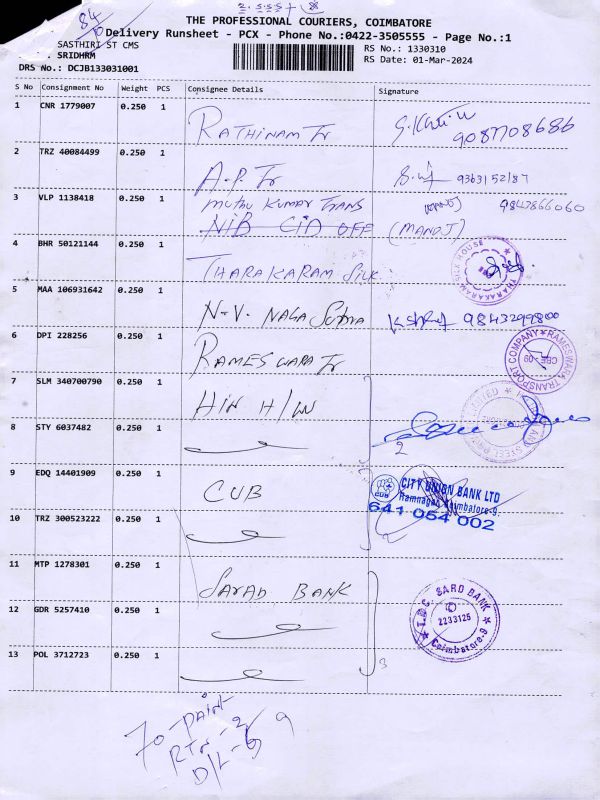 84
THE PROFESSIONAL COURIERS, COIMBATORE
Delivery Runsheet - PCX - Phone No.:0422-3505555 - Page No.:1
SASTHIRI ST CMS
SRIDHRM
RS No.: 1330310
RS Date: 01-Mar-2024
DRS No.: DCJB133031001
S No Consignment No Weight PCS Consignee Details Signature
1 CNR 1779007 0.250 1
RATHINAM Tr
9087708686
2 TRZ 40084499 0.250 1
A.P. Tr 9363152187
3 VLP 1138418 0.250 1 MUTHU KUMAR TRANS 9847866060
NIB CID OFF (MANOJ)
4 BHR 50121144 0.250 1
THARAKARAM SILK
5 MAA 106931642 0.250 1
N.V. NAGA SUTHA 9843299800
6 DPI 228256 0.250 1
RAMESWARA Tr
RAMESWARA TRANSPORT COMPANY
CBE-09
7 SLM 340700790 0.250 1
HIN H/W
8 STY 6037482 0.250 1
2
9 EDQ 14401909 0.250 1
CUB
CITY UNION BANK LTD
Ramnagar, Coimbatore-9.
641 054 002
CUB
2
10 TRZ 300523222 0.250 1
11 MTP 1278301 0.250 1
SARAD BANK
12 GDR 5257410 0.250 1
SARD BANK
2233125
Coimbatore-9
13 POL 3712723 0.250 1
3
70 - PAINT
RTN - 2
D/L - 69
9